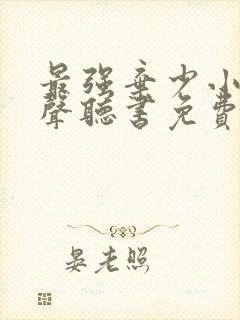 最强弃少小
聲聽書免費
晏老照